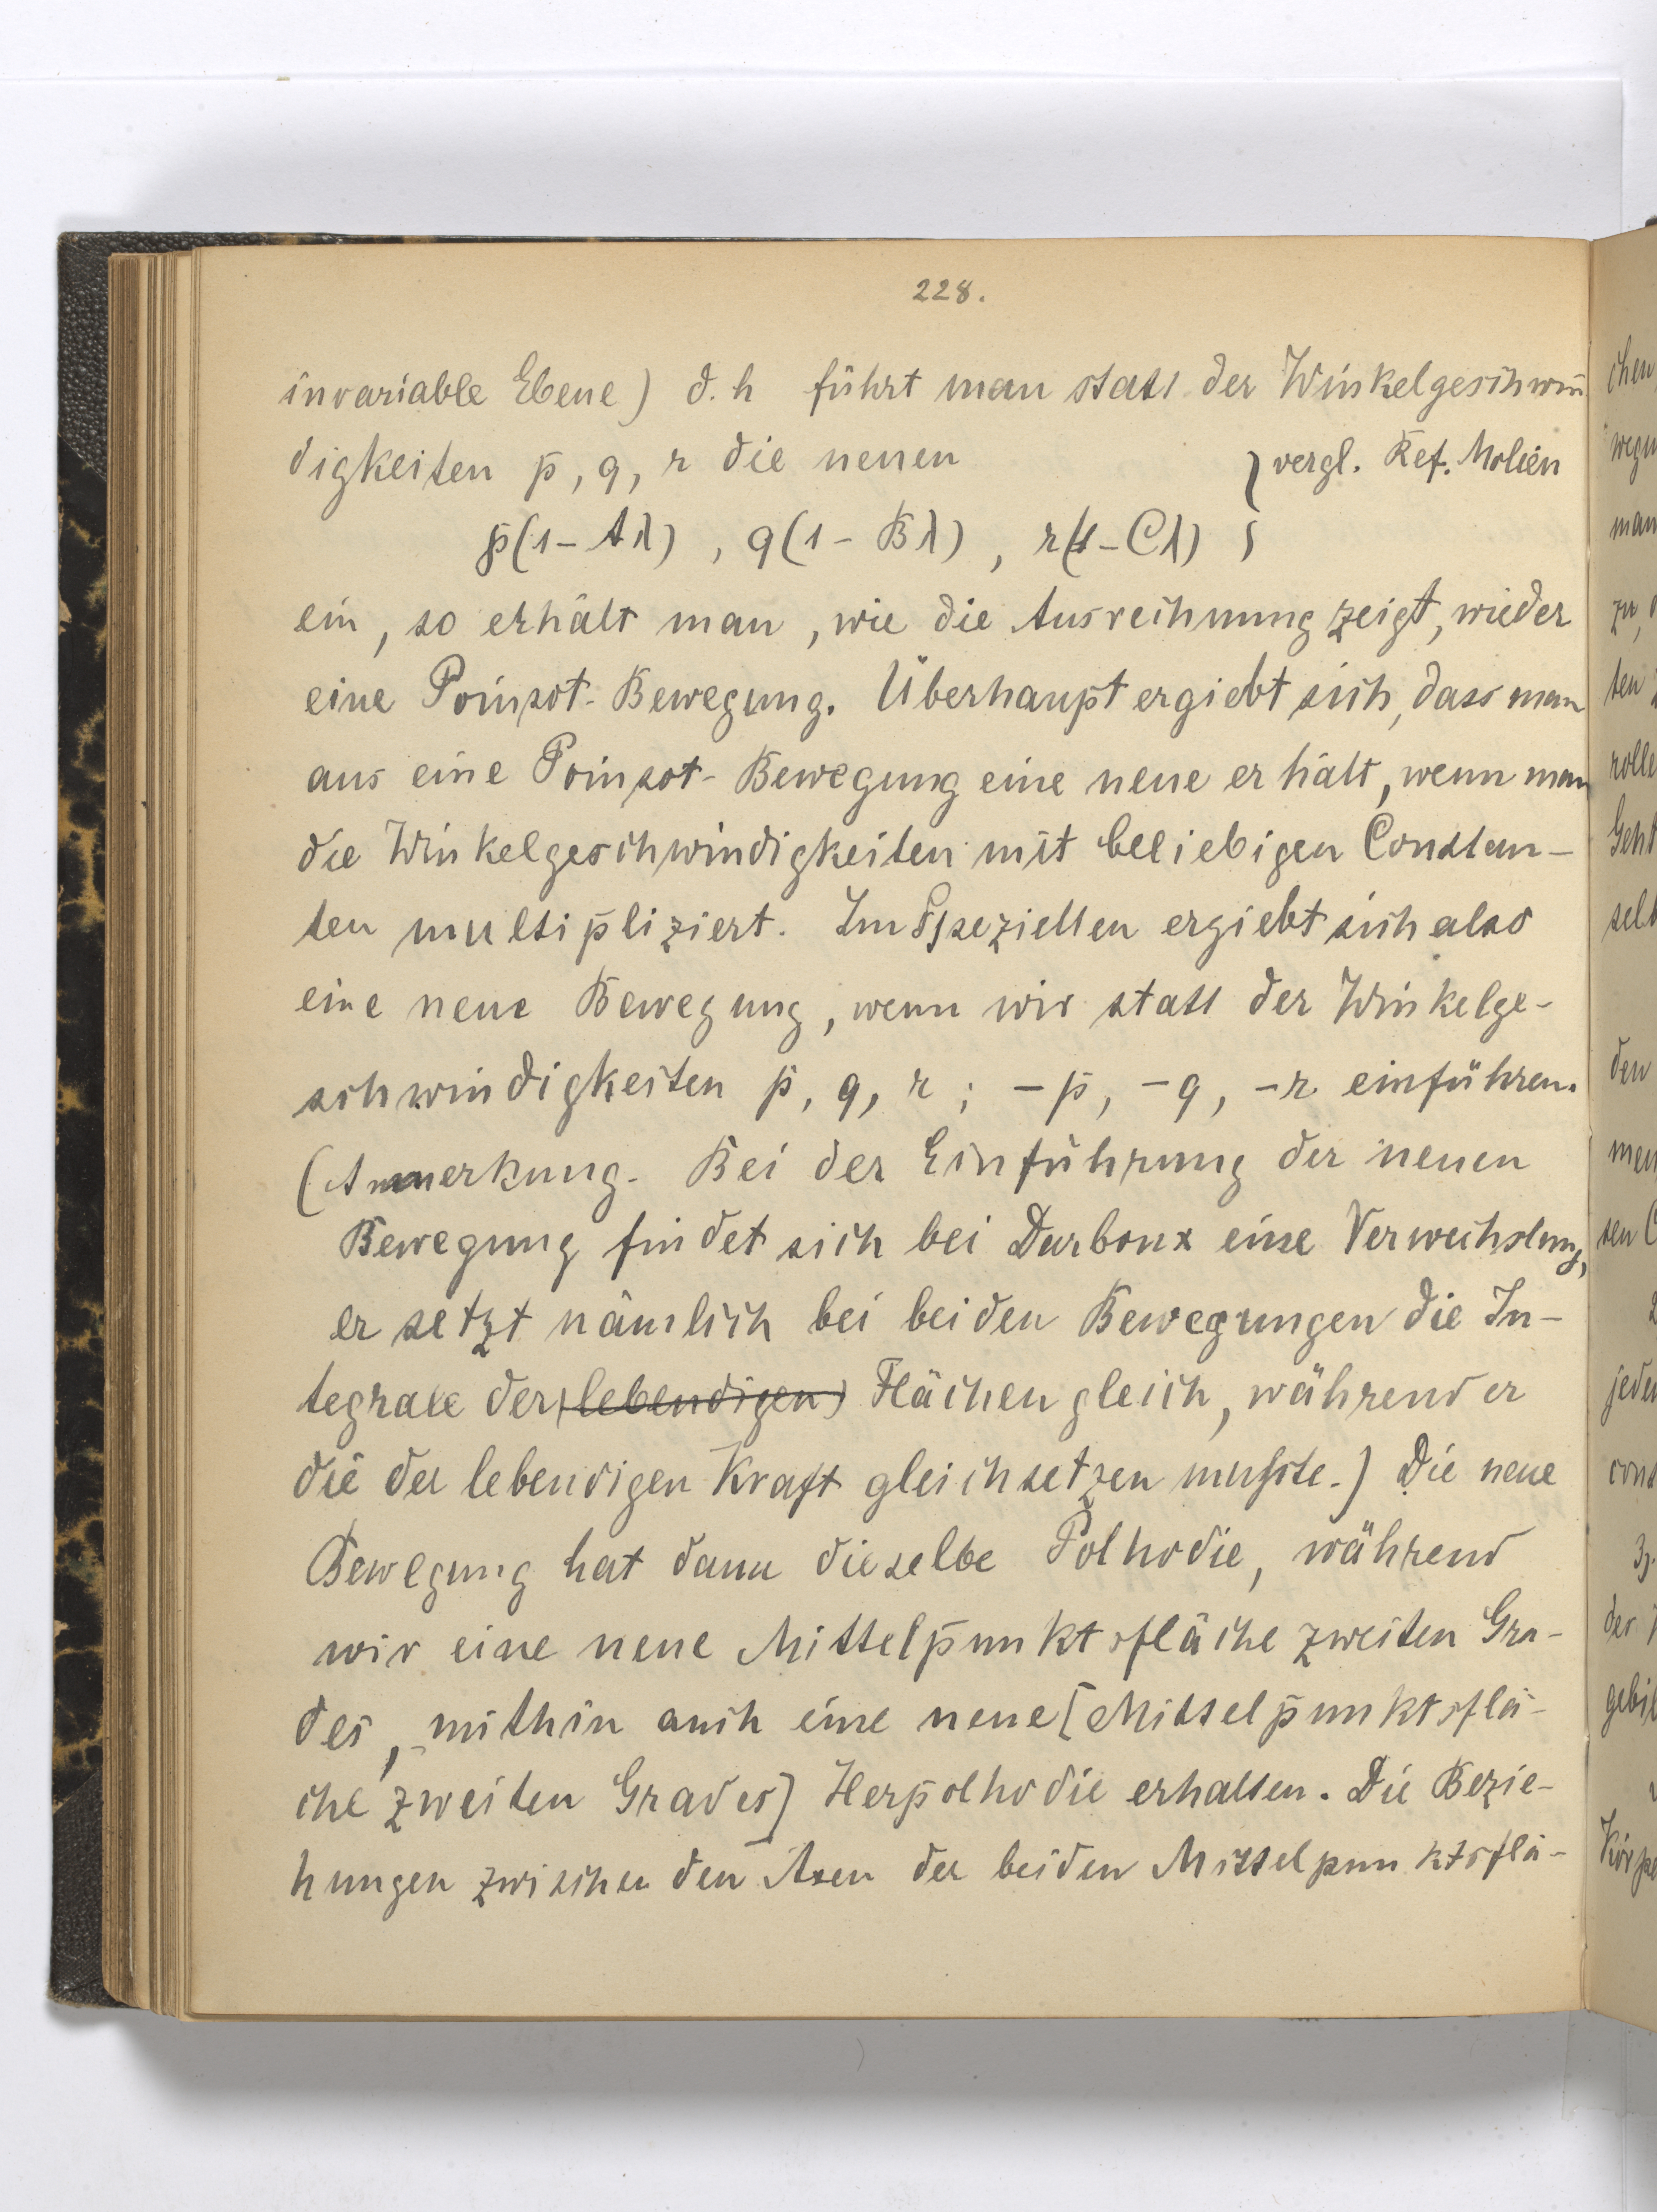 228.
invariable Ebene) d. h führt man statt der Winkelgeschwin̄
digkeiten p, q, r die neuen } vergl. Ref. Molien
p(1-Aλ) , q(1-Bλ) , r(1-Cλ)
ein, so erhält man, wie die Ausrechnung zeigt, wieder
eine Poinsot-Bewegung. Überhaupt ergiebt sich, dass man
aus eine Poinsot-Bewegung eine neue erhält, wenn man
die Winkelgeschwindigkeiten mit beliebigen Constan-
ten multipliziert. Im Speziellen ergiebt sich also
eine neue Bewegung, wenn wir statt der Winkelge-
schwindigkeiten p, q, r ; -p, -q, -r einführen.
(Anmerkung. Bei der Einführung der neuen
Bewegung findet sich bei Darboux eine Verwechslung,
er setzt nämlich bei beiden Bewegungen die In-
tegrale der (lebendigen) Flächen gleich, während er
die der lebendigen Kraft gleichsetzen musste.) Die neue
Bewegung hat dann dieselbe Polhodie, während
wir eine neue Mittelpunktsfläche zweiten Gra-
des, mithin auch eine neue [Mittelpunktsflä-
che zweiten Grades] Herpolhodie erhalten. Die Bezie-
hungen zwischen den Axen der beiden Mittelpunktsflä-